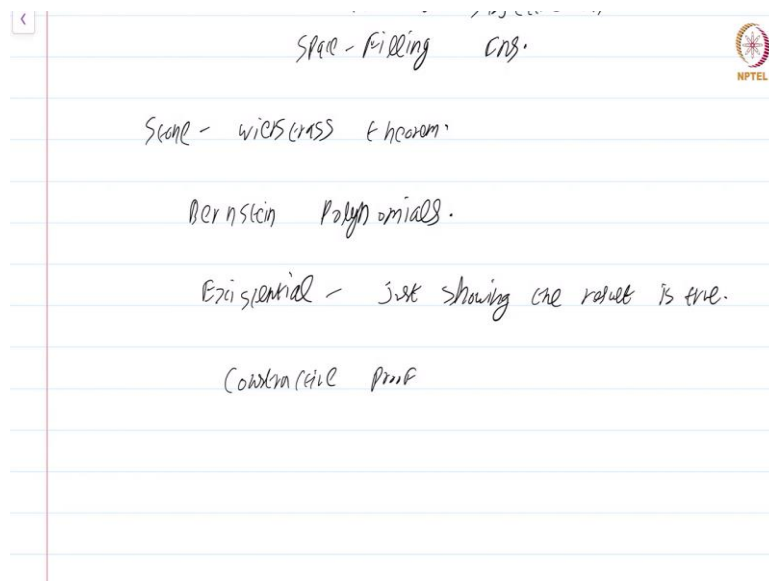 Space-Filling cns.
NPTEL
Stone - wierstrass theorem.
Bernstein Polynomials.
Existential - just showing the result is true.
Constructive proof